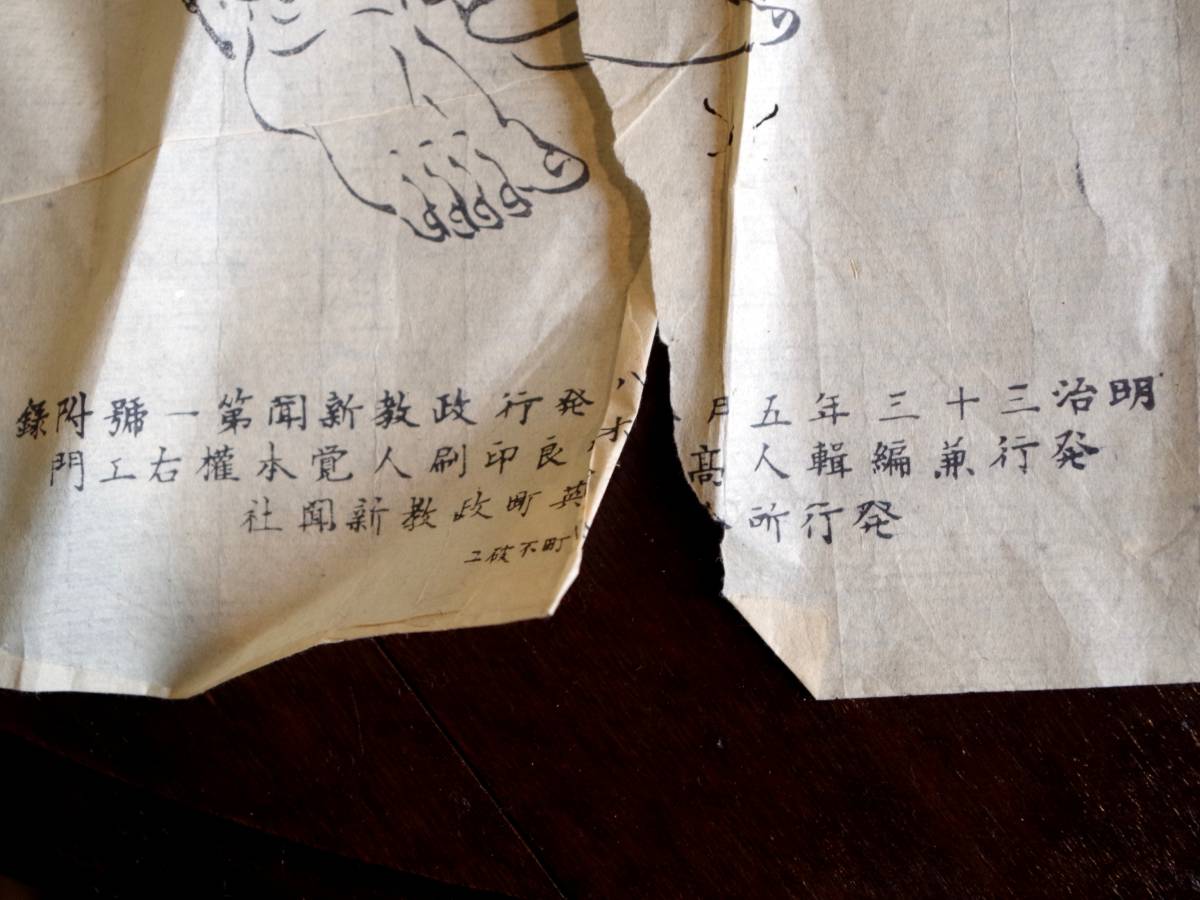 明治三十三年五月 八 発行政教新聞第一號附録
発行兼編輯人髙木 良印刷人覚本權右エ門
発行所 英町政教新聞社
町不破二